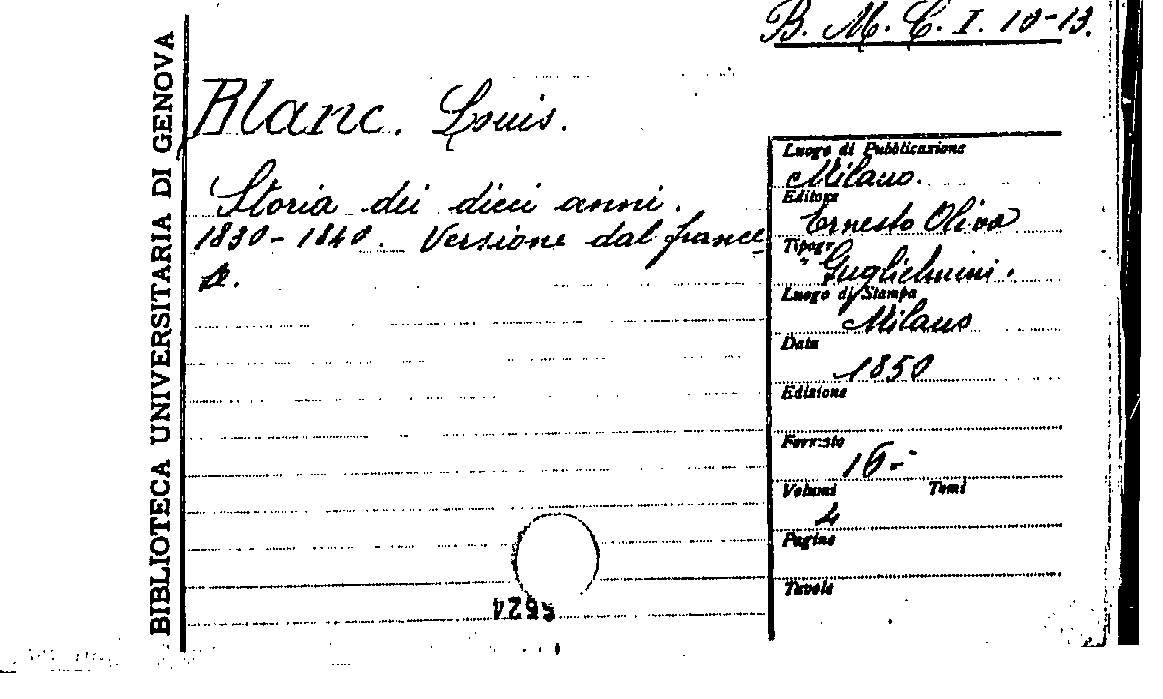 B. M. C. I. 10-13.
BIBLIOTECA UNIVERSITARIA DI GENOVA
Blanc. Louis.
Storia dei dieci anni.
1830-1840. Versione dal france-
se.
Luogo di Pubblicazione
Milano.
Editore
Ernesto Oliva
Tipogr.
Guglielmini.
Luogo di Stampa
Milano
Data
1850
Edizione
Formato
16.-
Volumi Tomi
4
Pagine
Tavole